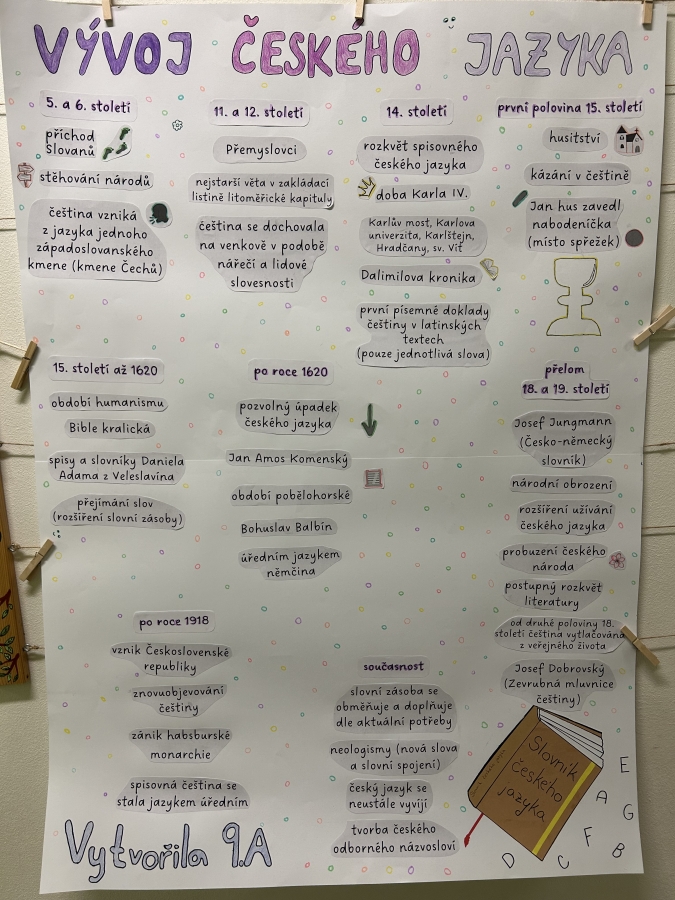 VÝVOJ ČESKÉHO JAZYKA
5. a 6. století
příchod
Slovanů
stěhování národů
čeština vzniká
z jazyka jednoho
západoslovanského
kmene (kmene Čechů)
11. a 12. století
Přemyslovci
nejstarší věta v zakládací
listině litoměřické kapituly
čeština se dochovala
na venkově v podobě
nářečí a lidové
slovesnosti
14. století
rozkvět spisovného
českého jazyka
doba Karla IV.
Karlův most, Karlova
univerzita, Karlštejn,
Hradčany, sv. Vít
Dalimilova kronika
první písemné doklady
češtiny v latinských
textech
(pouze jednotlivá slova)
první polovina 15. století
husitství
kázání v češtině
Jan hus zavedl
nabodeníčka
(místo spřežek)
15. století až 1620
období humanismu
Bible kralická
spisy a slovníky Daniela
Adama z Veleslavína
přejímání slov
(rozšíření slovní zásoby)
po roce 1620
pozvolný úpadek
českého jazyka
Jan Amos Komenský
období pobělohorské
Bohuslav Balbín
úředním jazykem
němčina
přelom
18. a 19. století
Josef Jungmann
(Česko-německý
slovník)
národní obrození
rozšíření užívání
českého jazyka
probuzení českého
národa
postupný rozkvět
literatury
od druhé poloviny 18.
století čeština vytlačována
z veřejného života
Josef Dobrovský
(Zevrubná mluvnice
češtiny)
po roce 1918
vznik Československé
republiky
znovuobjevování
češtiny
zánik habsburské
monarchie
spisovná čeština se
stala jazykem úředním
současnost
slovní zásoba se
obměňuje a doplňuje
dle aktuální potřeby
neologismy (nová slova
a slovní spojení)
český jazyk se
neustále vyvíjí
tvorba českého
odborného názvosloví
Slovník
českého
jazyka
E
A
G
F
B
D
C
Vytvořila 9.A